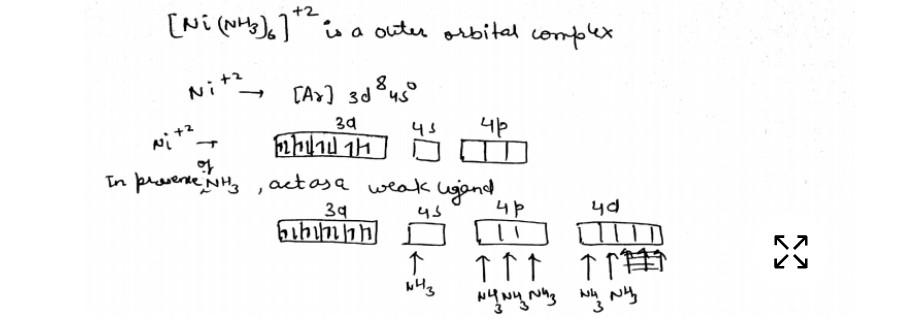 [Ni(NH3)6]+2 is a outer orbital complex
Ni+2 → [Ar] 3d8 4s0
3d 4s 4p
Ni+2 →
In presence of NH3, act as a weak ligand
3d 4s 4p 4d
NH3 NH3 NH3 NH3 NH3 NH3